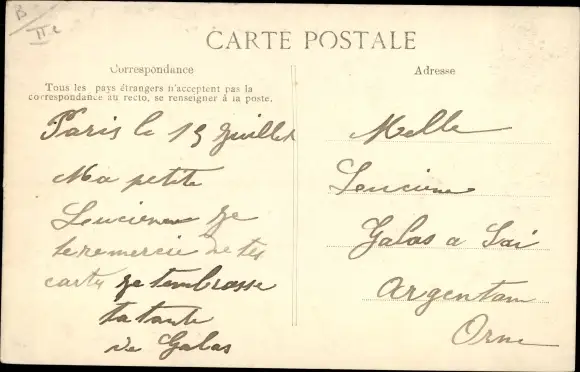 B
II c
CARTE POSTALE
Correspondance
Tous les pays étrangers n'acceptent pas la
correspondance au recto, se renseigner à la poste.
Paris le 15 Juillet
Ma petite
Lucienne je
te remercie de tes
cartes je tembrasse
ta tante
de Galas
Adresse
Melle
Lucienne
Galas a Sai
Argentan
Orne